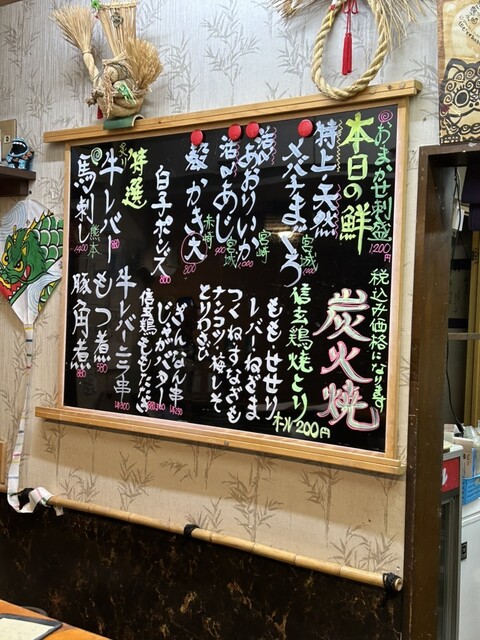 おまかせ刺盛 1200円
本日の鮮
特上・天然
メバチまぐろ 宮城
活〆あおりいか 宮崎
活〆あじ 宮城
殻かき大 赤崎 800
白子ポンズ 800
特選
炙り
牛レバー 980
馬刺し 熊本 1400
税込み価格になります
炭火焼
信玄鶏焼とり
もも・せせり オール200円
レバー・ねぎま
つくね・すなぎも
ナンコツ・梅しそ
とりわさび
ぎんなん串
じゃがバター
信玄鶏ももたたき
牛レバーニラ串
もつ煮 580
豚角煮 880